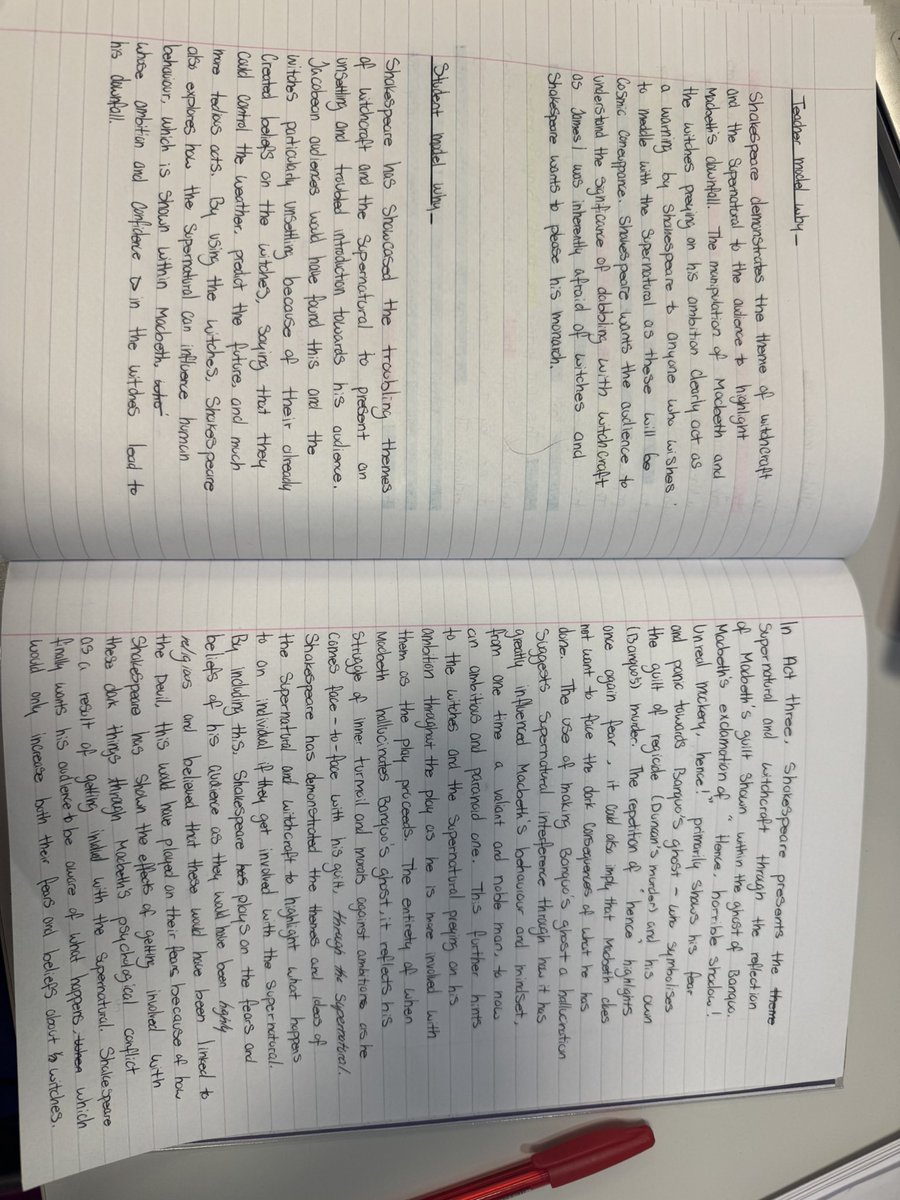 Teacher model why-
Shakespeare demonstrates the theme of witchcraft
and the supernatural to the audience to highlight
Macbeth's downfall. The manipulation of Macbeth and
the witches preying on his ambition clearly act as
a warning by Shakespeare to anyone who wishes
to meddle with the supernatural as these will be
cosmic comeuppance. Shakespeare wants the audience to
understand the significance of dabbling with witchcraft
as James I was inherently afraid of witches and
Shakespeare wants to please his monarch.
Student model why-
Shakespeare has showcased the troubling themes
of witchcraft and the supernatural to present an
unsettling and troubled introduction towards his audience.
Jacobean audiences would have found this and the
witches particularly unsettling because of their already
created beliefs on the witches, saying that they
could control the weather, predict the future, and much
more tedious acts. By using the witches, Shakespeare
also explores how the supernatural can influence human
behaviour, which is shown within Macbeth,
whose ambition and confidence in the witches lead to
his downfall.
In Act three, Shakespeare presents the theme
supernatural and witchcraft through the reflection
of Macbeth's guilt shown within the ghost of Banquo.
Macbeth's exclamation of "Hence, horrible shadow!
Unreal mockery, hence!" primarily shows his fear
and panic towards Banquo's ghost - who symbolises
the guilt of regicide (Duncan's murder) and his own
(Banquo's) murder. The repetition of "hence" highlights
once again fear, it could also imply that Macbeth does
not want to face the dark consequences of what he has
done. The use of making Banquo's ghost a hallucination
suggests supernatural interference through how it has
greatly influenced Macbeth's behaviour and mindset,
from one time a valiant and noble man, to now
an ambitious and paranoid one. This further hints
to the witches and the supernatural preying on his
ambition throughout the play as he is more involved with
them as the play proceeds. The entirety of when
Macbeth hallucinates Banquo's ghost, it reflects his
struggle of inner turmoil and morals against ambitions as he
comes face-to-face with his guilt, through the supernatural.
Shakespeare has demonstrated the themes and ideas of
the supernatural and witchcraft to highlight what happens
to an individual if they get involved with the supernatural.
By including this, Shakespeare has plays on the fears and
beliefs of his audience as they would have been highly
religious and believed that these would have been linked to
the Devil, this would have played on their fears because of how
Shakespeare has shown the effects of getting involved with
these dark things through Macbeth's psychological conflict
as a result of getting involved with the supernatural. Shakespeare
finally wants his audience to be aware of what happens, which
would only increase both their fears and beliefs about witches.